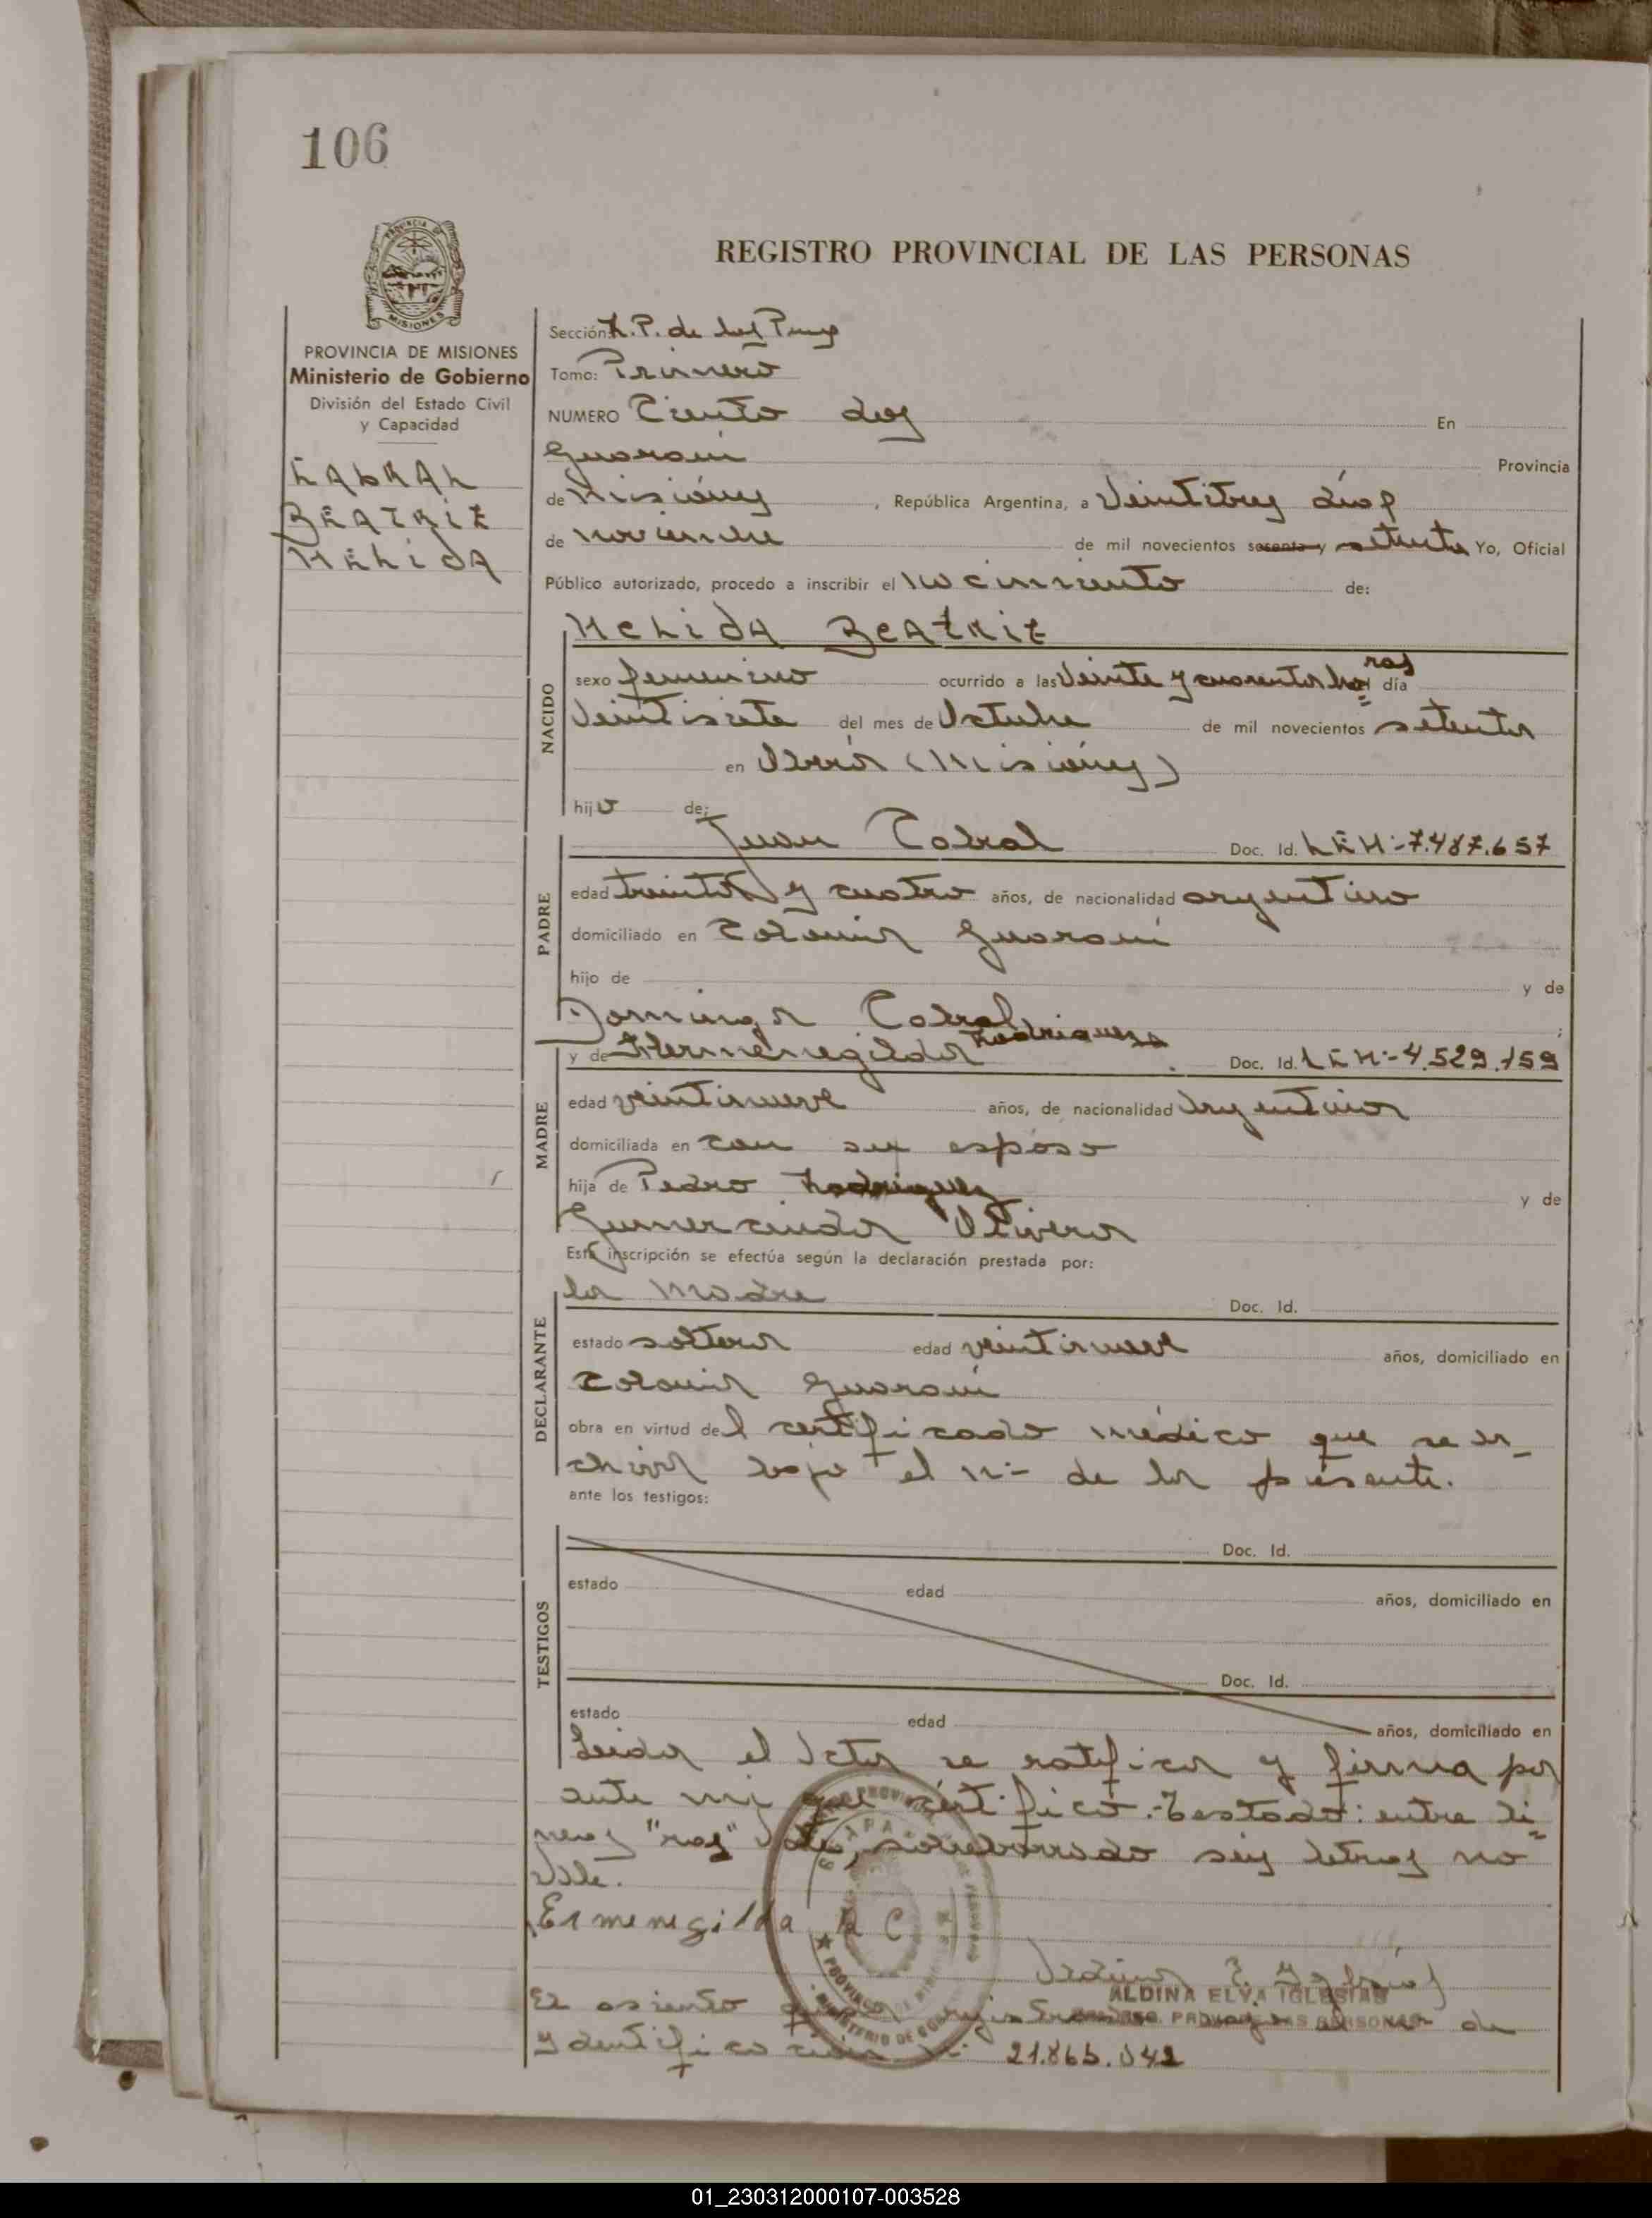 106
REGISTRO PROVINCIAL DE LAS PERSONAS
MISIONES
PROVINCIA DE MISIONES
Ministerio de Gobierno
División del Estado Civil
y Capacidad
CABRAL
BEATRIZ
NELIDA
Sección R. P. de las
Tomo: Primero
NUMERO Ciento dos En
Guarani Provincia
de Misiones , República Argentina, a Veintitres días
de noviembre de mil novecientos sesenta y setenta Yo, Oficial
Público autorizado, procedo a inscribir el nacimiento de:
NELIDA BEATRIZ
NACIDO
sexo femenino ocurrido a las Veinte y cuarenta horas día
Veintisiete del mes de Octubre de mil novecientos setenta
en Oberá (Misiones)
hija de:
PADRE
Juan Cabral Doc. Id. LEN:-7.487.657
edad treinta y cuatro años, de nacionalidad argentino
domiciliado en Colonia Guarani
hijo de y de
Dominga Cabral
MADRE
y de Hermenegilda Rodriguez Doc. Id. LEN:-4.529.159
edad veintinueve años, de nacionalidad Argentina
domiciliada en con su esposo
hija de Pedro Rodriguez y de
Gumercinda Olivera
Esta inscripción se efectúa según la declaración prestada por:
DECLARANTE
la madre Doc. Id.
estado soltera edad veintinueve años, domiciliado en
Colonia Guarani
obra en virtud del certificado médico que se ar-
chiva bajo el n:- de la presente.
ante los testigos:
TESTIGOS
Doc. Id.
estado edad años, domiciliado en
Doc. Id.
estado edad años, domiciliado en
Leida el Acta se ratifica y firma por
ante mi que certifico.- Testado: entre li=
neas "ras" Vale, sobreborrado seis letras no
Vale.
Ermenegilda R C
ALDINA ELVA IGLESIAS
El asiento de
Ydentificación
01_230312000107-003528